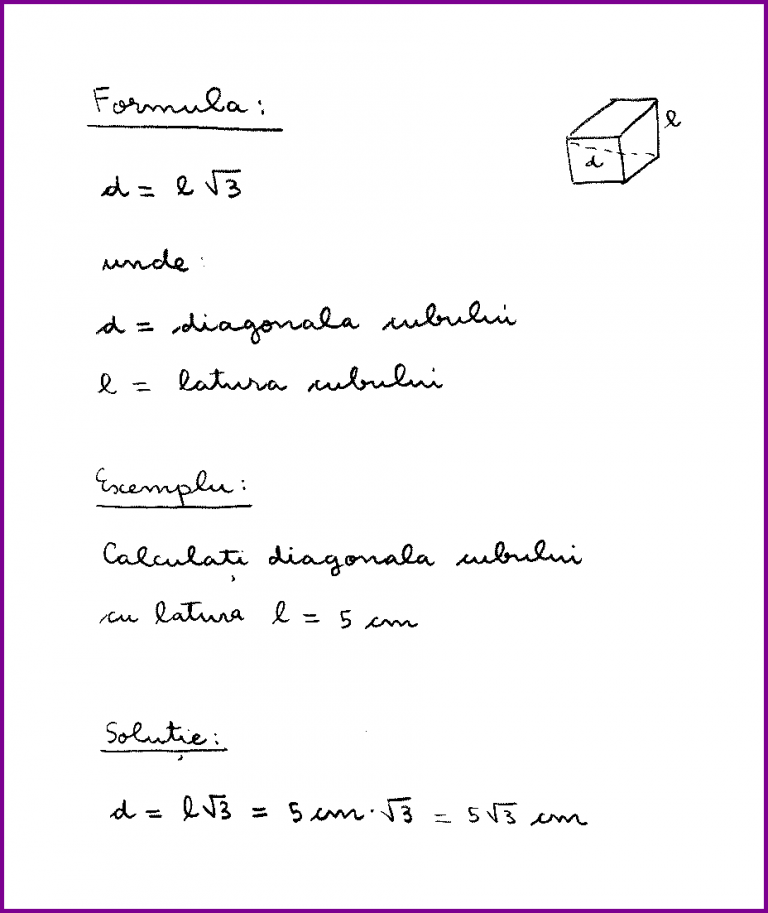 Formula:
l
d
d = l √3
unde:
d = diagonala cubului
l = latura cubului
Exemplu:
Calculați diagonala cubului
cu latura l = 5 cm
Soluție:
d = l√3 = 5 cm · √3 = 5√3 cm